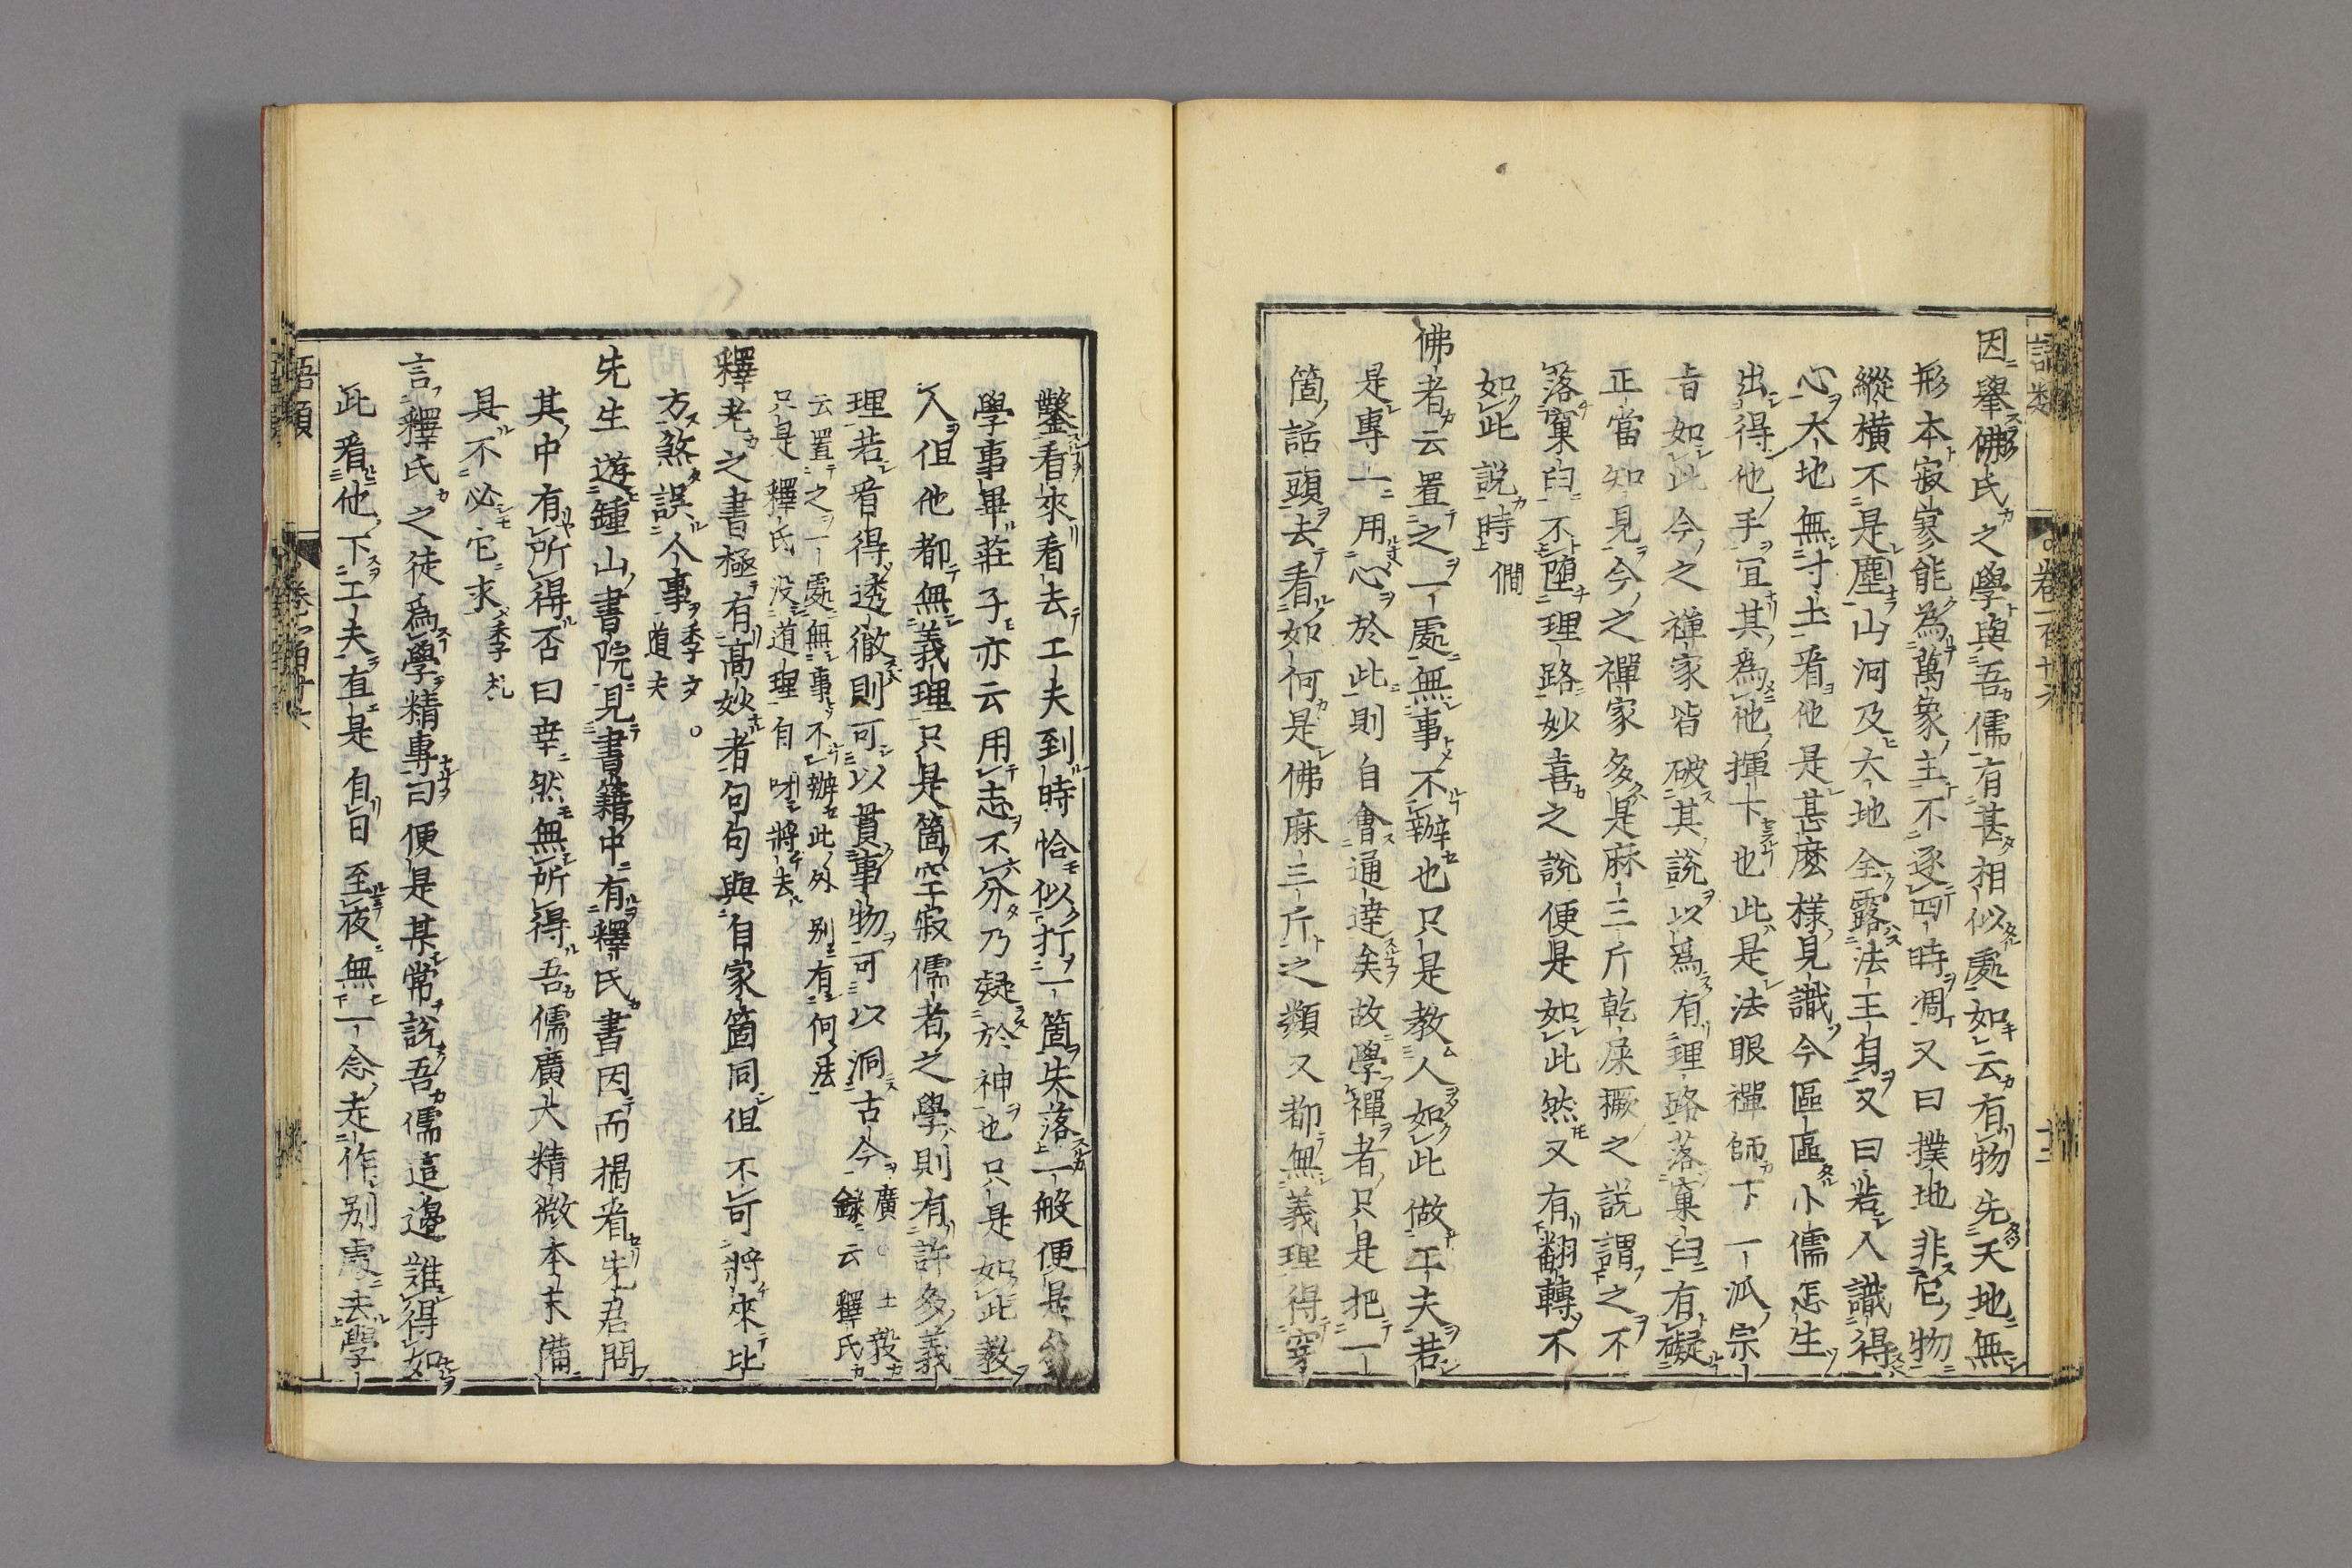 因舉佛氏之學與吾儒有甚相似處如云有物先天地無
形本寂寥能為萬象主不逐四時凋又曰撲地非它物
縱橫不是塵山河及大地全露法王身又曰若人識得
心大地無寸土看他是甚麼樣見識今區區小儒怎生
出得他手宜其為他揮下也此是法眼禪師下一派宗
旨如此今之禪家皆破其說以為有理路落窠臼有礙
正當知見今之禪家多是麻三斤乾屎橛之說謂之不
落窠臼不墮理路妙喜之說便是如此然又有翻轉不
如此說時 僩
佛者云置之一處無事不辦也只是教人如此做工夫若
是專一用心於此則自會通達矣故學禪者只是把一
箇話頭去看如何是佛麻三斤之類又都無義理得穿
鑿看來看去工夫到時恰似打一箇失落一般便是參
學事畢莊子亦云用志不分乃凝於神也只是如此教
人但他都無義理只是箇空寂儒者之學則有許多義
理若看得透徹則可以貫事物可以洞古今 廣 士毅錄云釋氏
云置之一處無事不辦此外別有何法
只是釋氏沒道理自呀將去
釋老之書極有高妙者句句與自家箇同但不可將來比
方煞誤人事 季文 道夫
先生遊鍾山書院見書籍中有釋氏書因而揭看先君問
其中有所得否曰幸然無所得吾儒廣大精微本末備
具不必它求 季札
言釋氏之徒為學精專曰便是某常說吾儒這邊難得如
此看他下工夫直是自日至夜無一念走作別處去學